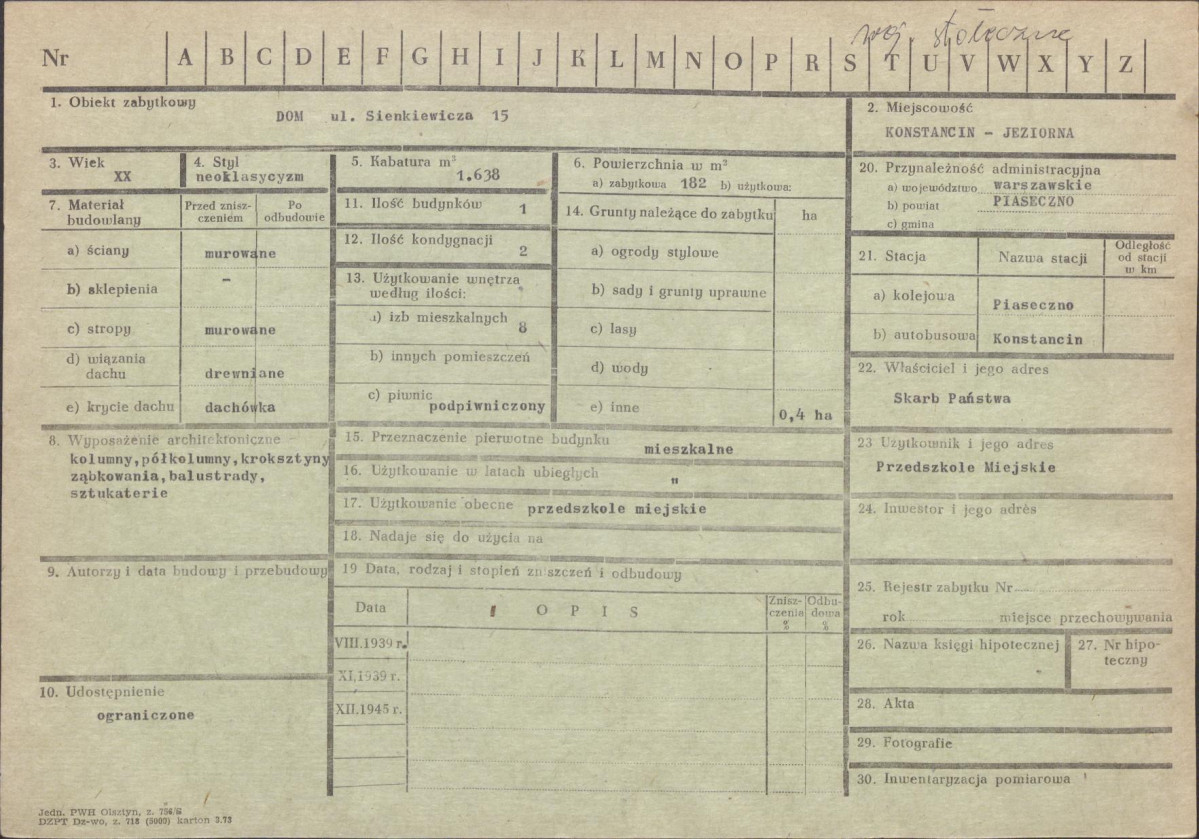 woj. stołeczne
Nr A B C D E F G H I J K L M N O P R S T U V W X Y Z
1. Obiekt zabytkowy
DOM ul. Sienkiewicza 15
2. Miejscowość
KONSTANCIN - JEZIORNA
3. Wiek
XX
4. Styl
neoklasycyzm
5. Kabatura m³
1.638
6. Powierzchnia w m²
a) zabytkowa 182 b) użytkowa:
20. Przynależność administracyjna
a) województwo warszawskie
b) powiat PIASECZNO
c) gmina
7. Materiał budowlany
Przed znisz-
czeniem
Po
odbudowie
a) ściany murowane
b) sklepienia -
c) stropy murowane
d) wiązania
dachu drewniane
e) krycie dachu dachówka
11. Ilość budynków 1
12. Ilość kondygnacji
2
13. Użytkowanie wnętrza
według ilości:
a) izb mieszkalnych 8
b) innych pomieszczeń
c) piwnic
podpiwniczony
14. Grunty należące do zabytku ha
a) ogrody stylowe
b) sady i grunty uprawne
c) lasy
d) wody
e) inne 0,4 ha
21. Stacja Nazwa stacji
Odległość
od stacji
w km
a) kolejowa Piaseczno
b) autobusowa Konstancin
22. Właściciel i jego adres
Skarb Państwa
8. Wyposażenie architektoniczne
kolumny,półkolumny,kroksztyny
ząbkowania,balustrady,
sztukaterie
15. Przeznaczenie pierwotne budynku
mieszkalne
16. Użytkowanie w latach ubiegłych "
17. Użytkowanie obecne przedszkole miejskie
18. Nadaje się do użycia na
23 Użytkownik i jego adres
Przedszkole Miejskie
24. Inwestor i jego adres
9. Autorzy i data budowy i przebudowy
19 Data, rodzaj i stopień zniszczeń i odbudowy
Data OPIS
Znisz-
czenia
%
Odbu-
dowa
%
VIII.1939 r.
XI,1939 r.
XII.1945 r.
25. Rejestr zabytku Nr
rok miejsce przechowywania
26. Nazwa księgi hipotecznej
27. Nr hipo-
teczny
10. Udostępnienie
ograniczone
28. Akta
29. Fotografie
30. Inwentaryzacja pomiarowa
Jedn. PWH Olsztyn, z. 756/S
DZPT Dz-wo, z. 718 (5000) karton 3.73